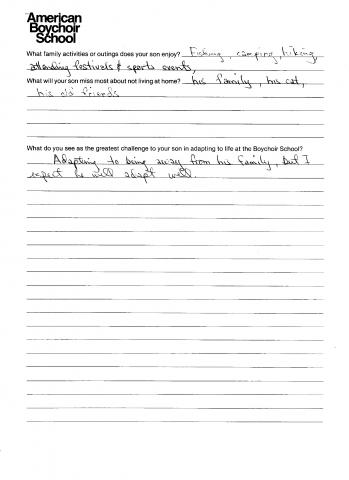 American
Boychoir
School
What family activities or outings does your son enjoy? Fishing, camping, hiking,
attending festivals & sports events,
What will your son miss most about not living at home? his family, his cat,
his old friends
What do you see as the greatest challenge to your son in adapting to life at the Boychoir School?
Adapting to being away from his family, but I
expect he will adapt well.